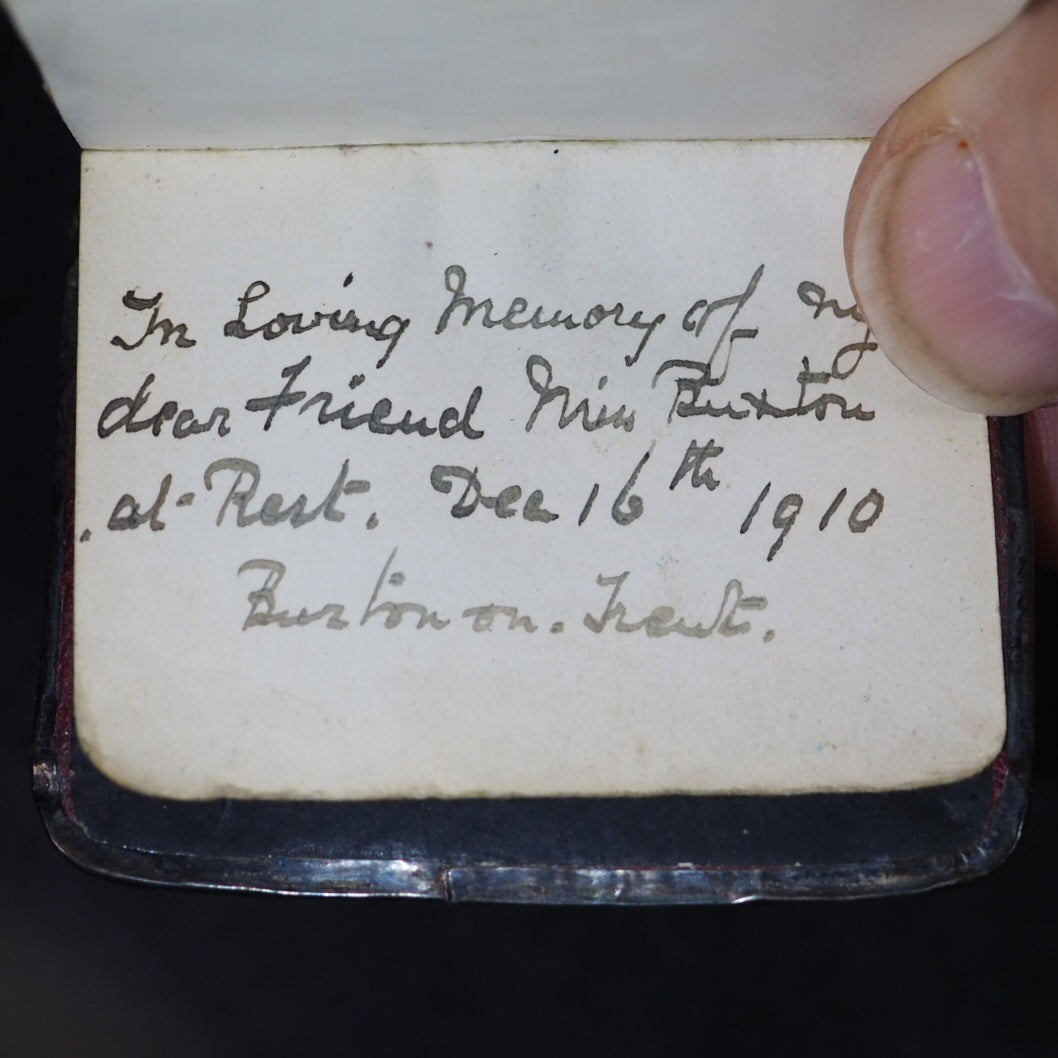 In Loving Memory of My
dear Friend Miss Buxton
. at Rest. Dec 16th 1910
Burton on. Trent.